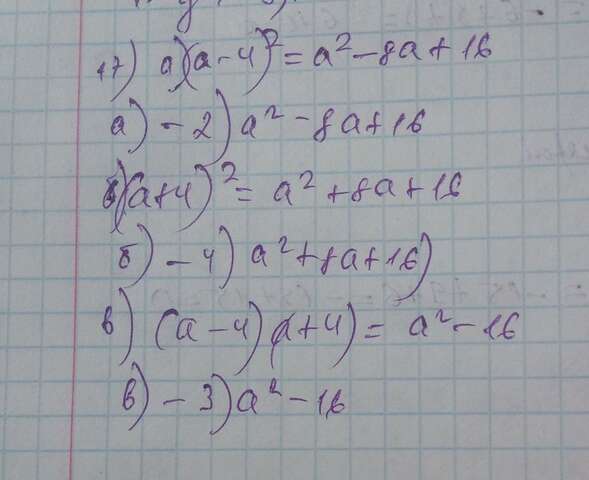 17) а)(a-4)² = a² - 8a + 16
а) - 2) a² - 8a + 16
б)(a+4)² = a² + 8a + 16
б) - 4) a² + 8a + 16)
в) (a-4)(a+4) = a² - 16
в) - 3) a² - 16